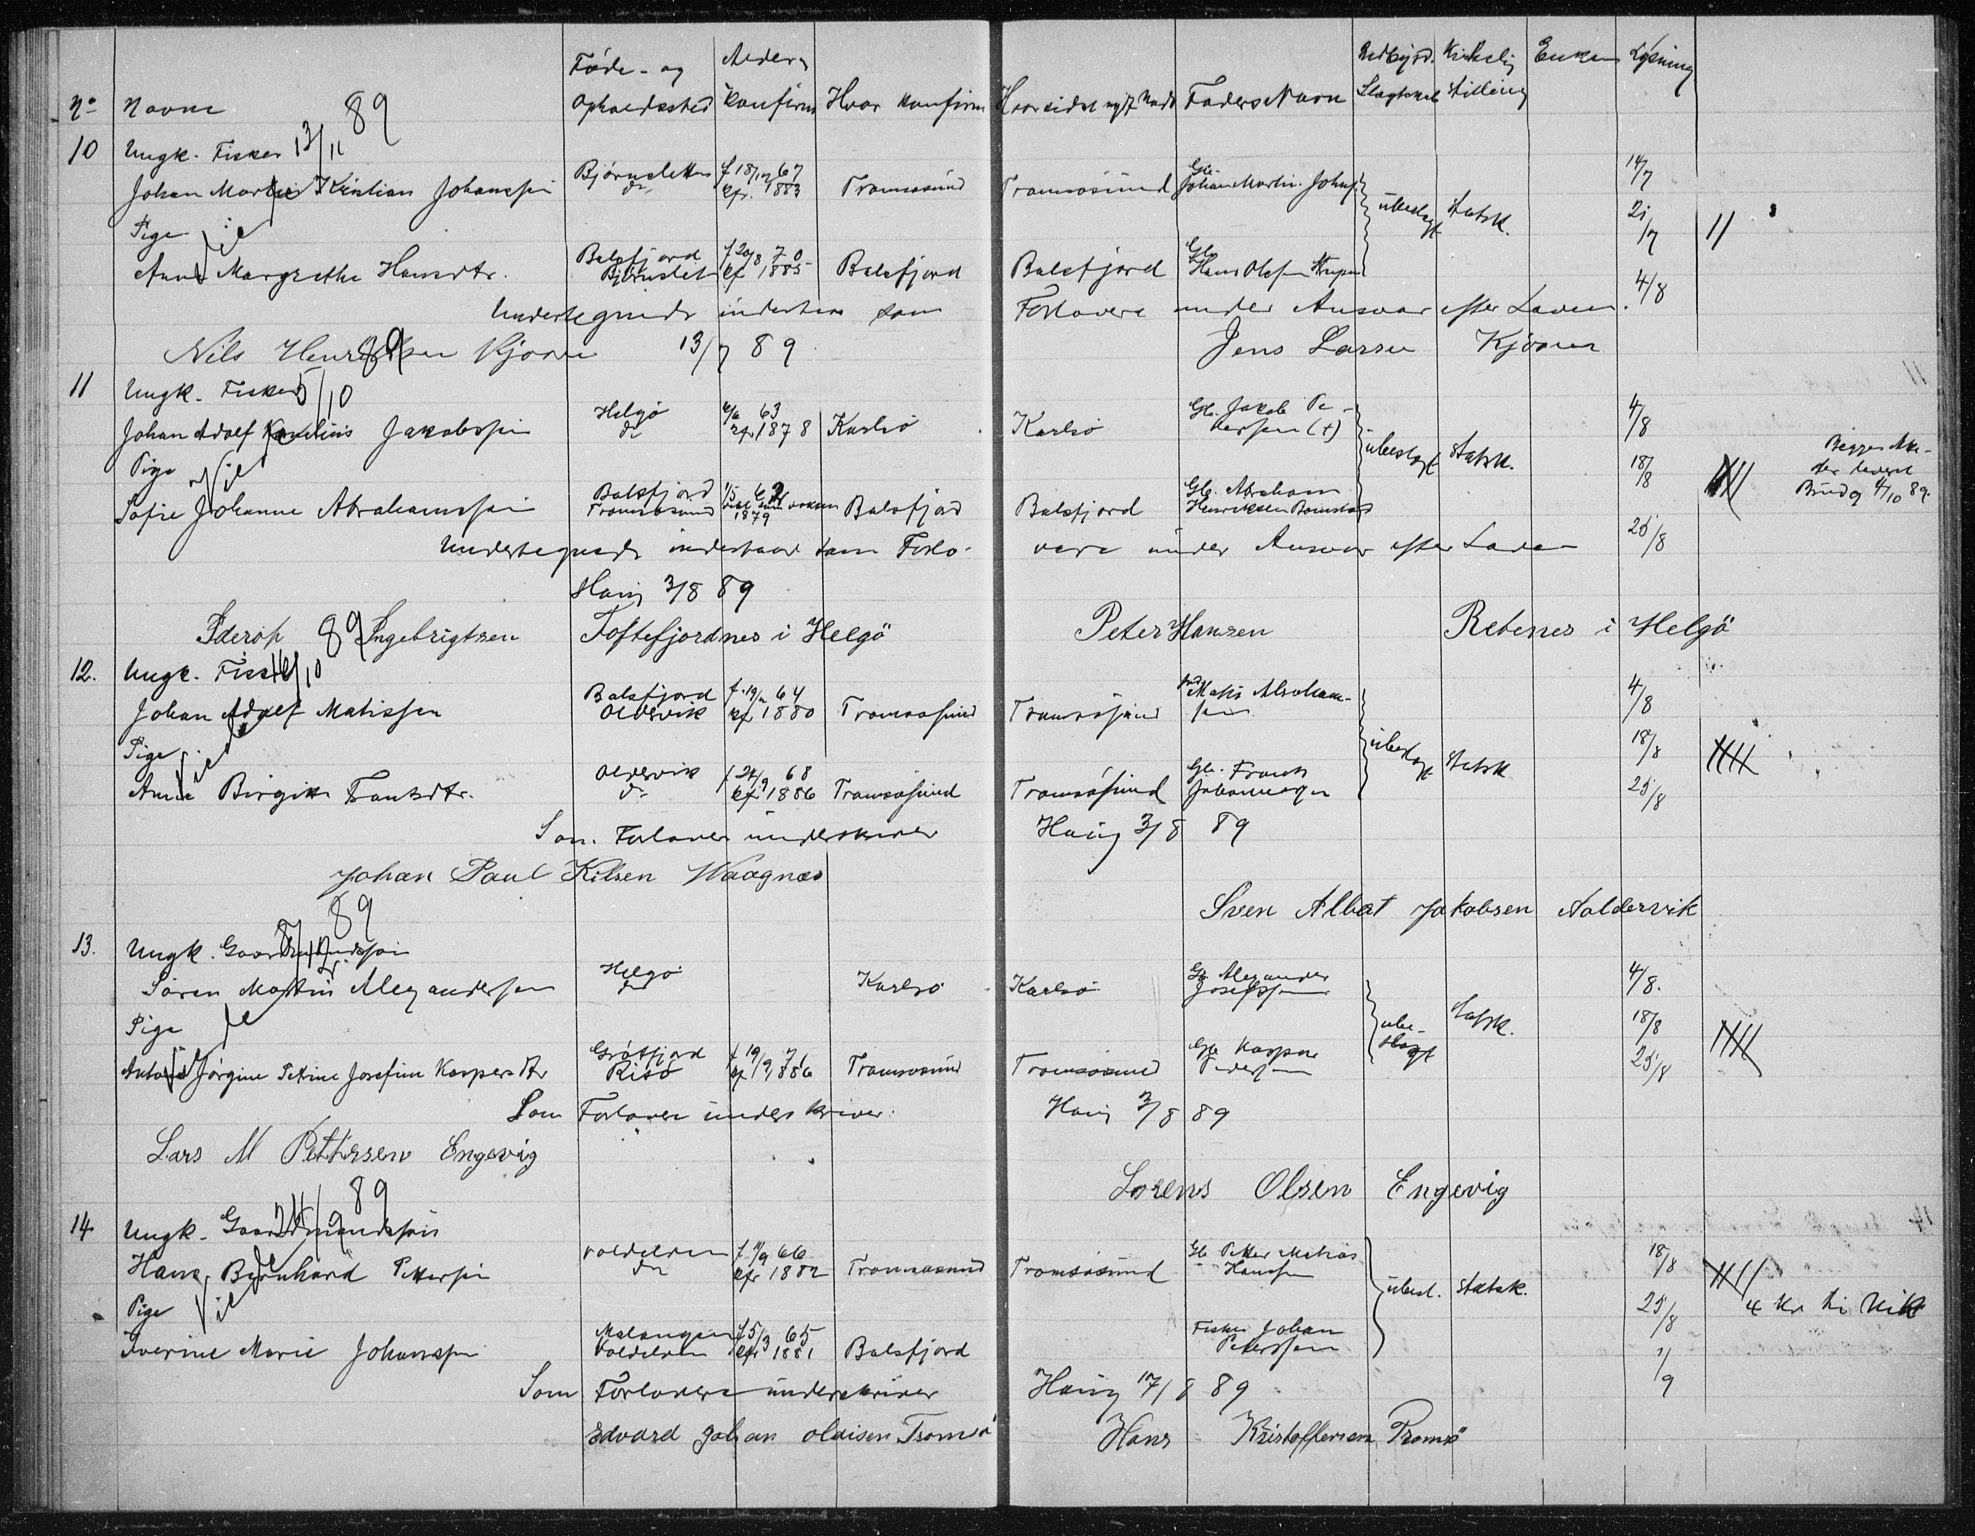 No Navne Føde- og Opholdssted Alder, konfirm Hvor konfirm Hvor sidst nydt Nadv Faders Navn Indbyrd. Slagtskab Kirkelig Stilling Enken Lysning
10 Ungk. Fisker 13/11 89
Johan Martin Kristian Johanssen Bjørnsletten do f 18/12 67 kfr. 1883 Tromsøsund Tromsøsund Gb. Johan Martin Johns ubeslegt Statsk. 14/7
Pige Viet 21/7 11
Anne Margrethe Hansdtr. Balsfjord Bjørnslet f 20/8 70 kf 1885 Balsfjord Balsfjord Gb. Hans Olsen 4/8
Undertegnede indestaa som Forlovere under Ansvar efter Loven.
Nils Henriksen Kjosen 13/7 89 Jens Larsen Kjosen
11 Ungk. Fisker 5/10 89
Johan Adolf Kornelius Jakobsen Helgø do 63 kfr 1878 Karlsø Karlsø Gb. Jakob Pedersen (+) ubeslegt Statsk. 4/8
Pige Viet 18/8 Begges Atte-
ster leveret
Brudg 4/10 89.
Sofie Johanne Abrahamssen Balsfjord Tromsøsund 1/5 62 1879 Balsfjord Balsfjord Gb. Abraham Henriksen 25/8
Undertegnede indestaar som Forlovere under Ansvar efter Loven
Havig 3/8 89
Ingebrigtsen Toftefjordnes i Helgö Peter Hansen Rebenes i Helgö
12. Ungk. Fisker /10 89
Johan Adolf Matissen Balsfjord Oldervik f. 19/ 64 kf 1880 Tromsøsund Tromsøsund Matis Abraham-
sen ubeslegt Statsk 4/8
Pige Viet 18/8
Anne Birgitte Frantsdtr. Oldervik do f 24/9 68 kf. 1886 Tromsøsund Tromsøsund Gb. Frants Johannesen 25/8
Som Forlover underskriver Havig 3/8 89
Johan Paul Kilsen Waagnæs
Sven Albert Jakobsen Aaldervik
13. Ungk. Gaardmandssøn 8/10 89
Søren Martin Alexandersen Helgø do Karlsø Karlsø Gb Alexander Josefssen ubeslegt Statsk. 4/8.
Pige Viet 18/8
Jørgine Petrine Josefine Kaspersdtr Grøtfjord Risø f 19/9 71 kf 1886 Tromsøsund Tromsøsund Gb. Kasper Pedersen 25/8
Som Forlover underskriver. Havig 3/8 89
Lars M Pettersen Engevig
Lorens Olsen Engevig
14 Ungk. Gaardmandssøn 24/9 89
Hans Bernhard Pettersen do f 11/9 66 kfr 1882 Tromsøsund Tromsøsund Gb Petter Matias Hanssen ubesl. Statsk. 18/8
Pige Viet 25/8 4 Kr
Iverine Marie Johanssen Malangen f 5/3 65 kfr 1881 Balsfjord Fisker Johan Peterssen 1/9
Som Forlovere underskriver Havig 17/8 89
Edvard Johan Olaisen Tromsö Hans Kristoffersen Tromsö